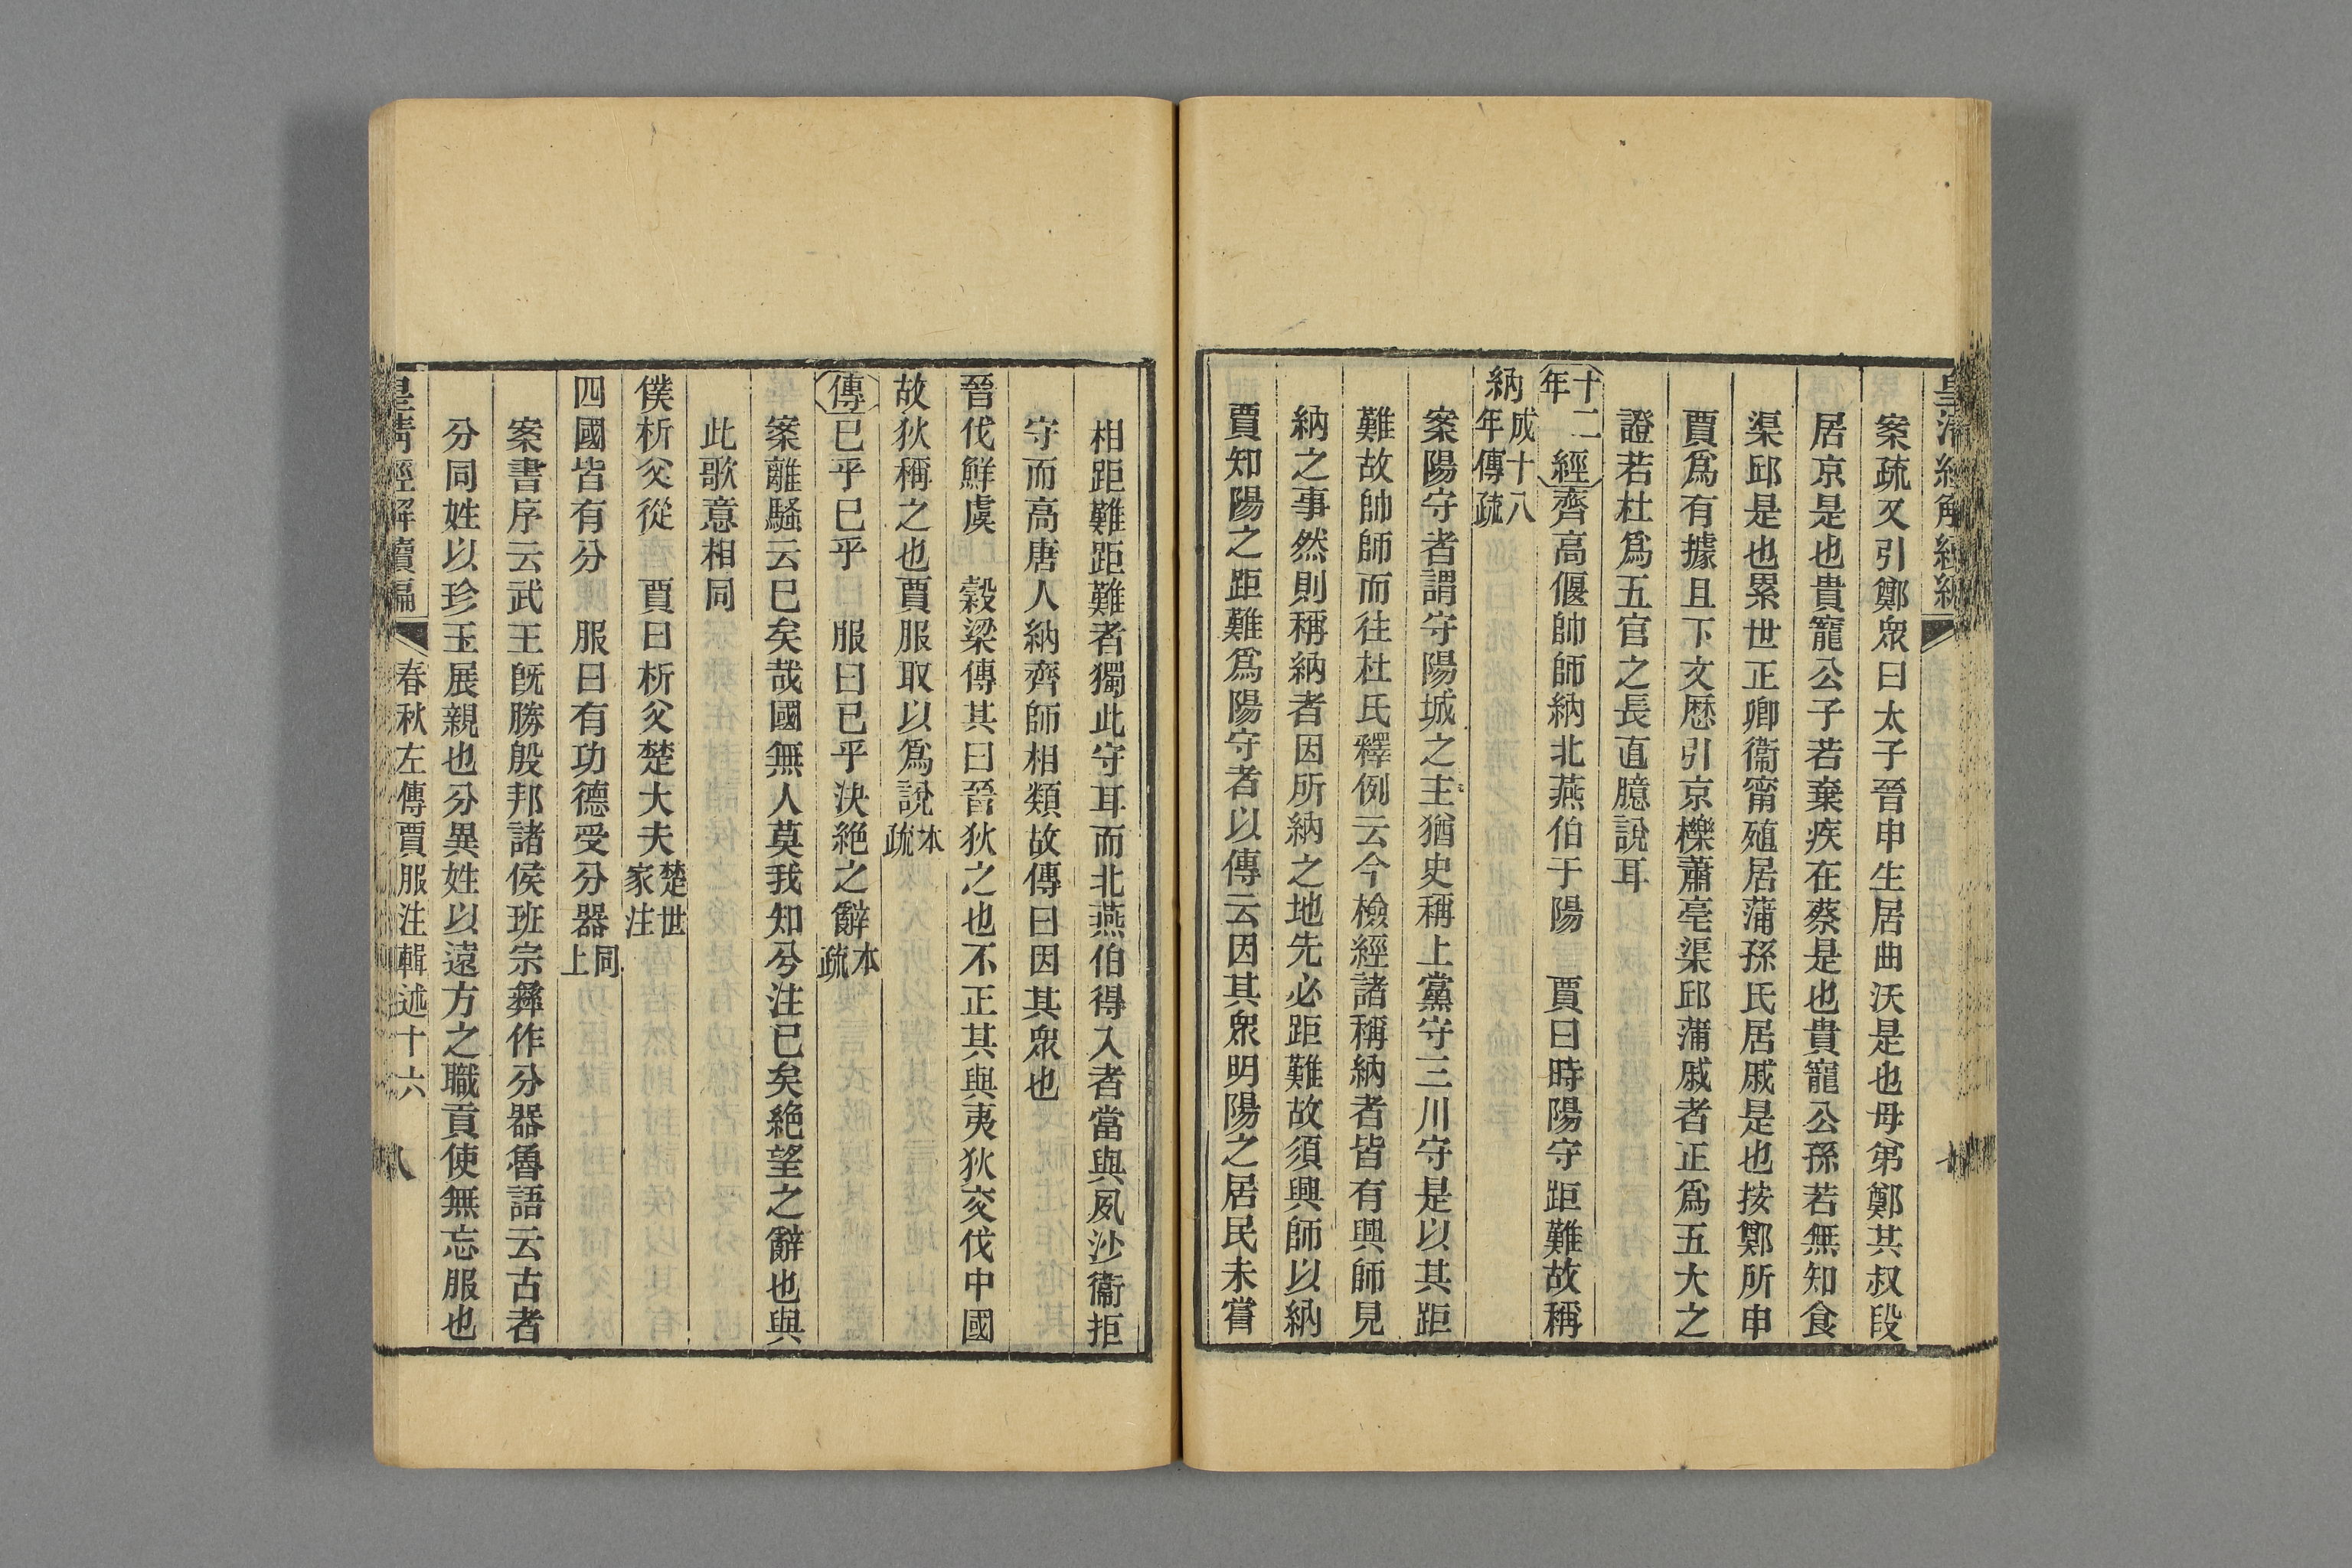 皇清經解續編
案疏又引鄭衆曰太子晉申生居曲沃是也母弟鄭其叔段
居京是也貴寵公子若棄疾在蔡是也貴寵公孫若無知食
渠邱是也累世正卿衞甯殖居蒲孫氏居戚是也按鄭所申
賈爲有據且下文歷引京櫟蕭亳渠邱蒲戚者正爲五大之
證若杜爲五官之長直臆說耳
十二年經齊高偃帥師納北燕伯于陽 賈曰時陽守距難故稱
納成十八年傳疏
案陽守者謂守陽城之主猶史稱上黨守三川守是以其距
難故帥師而往杜氏釋例云今檢經諸稱納者皆有興師見
納之事然則稱納者因所納之地先必距難故須興師以納
賈知陽之距難爲陽守者以傳云因其衆明陽之居民未嘗
相距難距難者獨此守耳而北燕伯得入者當與夙沙衞拒
守而高唐人納齊師相類故傳曰因其衆也
晉伐鮮虞 穀梁傳其曰晉狄之也不正其與夷狄交伐中國
故狄稱之也賈服取以爲說本疏
傳已乎已乎 服曰已乎決絶之辭本疏
案離騷云已矣哉國無人莫我知兮注已矣絶望之辭也與
此歌意相同
僕析父從 賈曰析父楚大夫楚世家注
四國皆有分 服曰有功德受分器同上
案書序云武王旣勝殷邦諸侯班宗彝作分器魯語云古者
分同姓以珍玉展親也分異姓以遠方之職貢使無忘服也
皇清經解續編 春秋左傳賈服注輯述十六 八